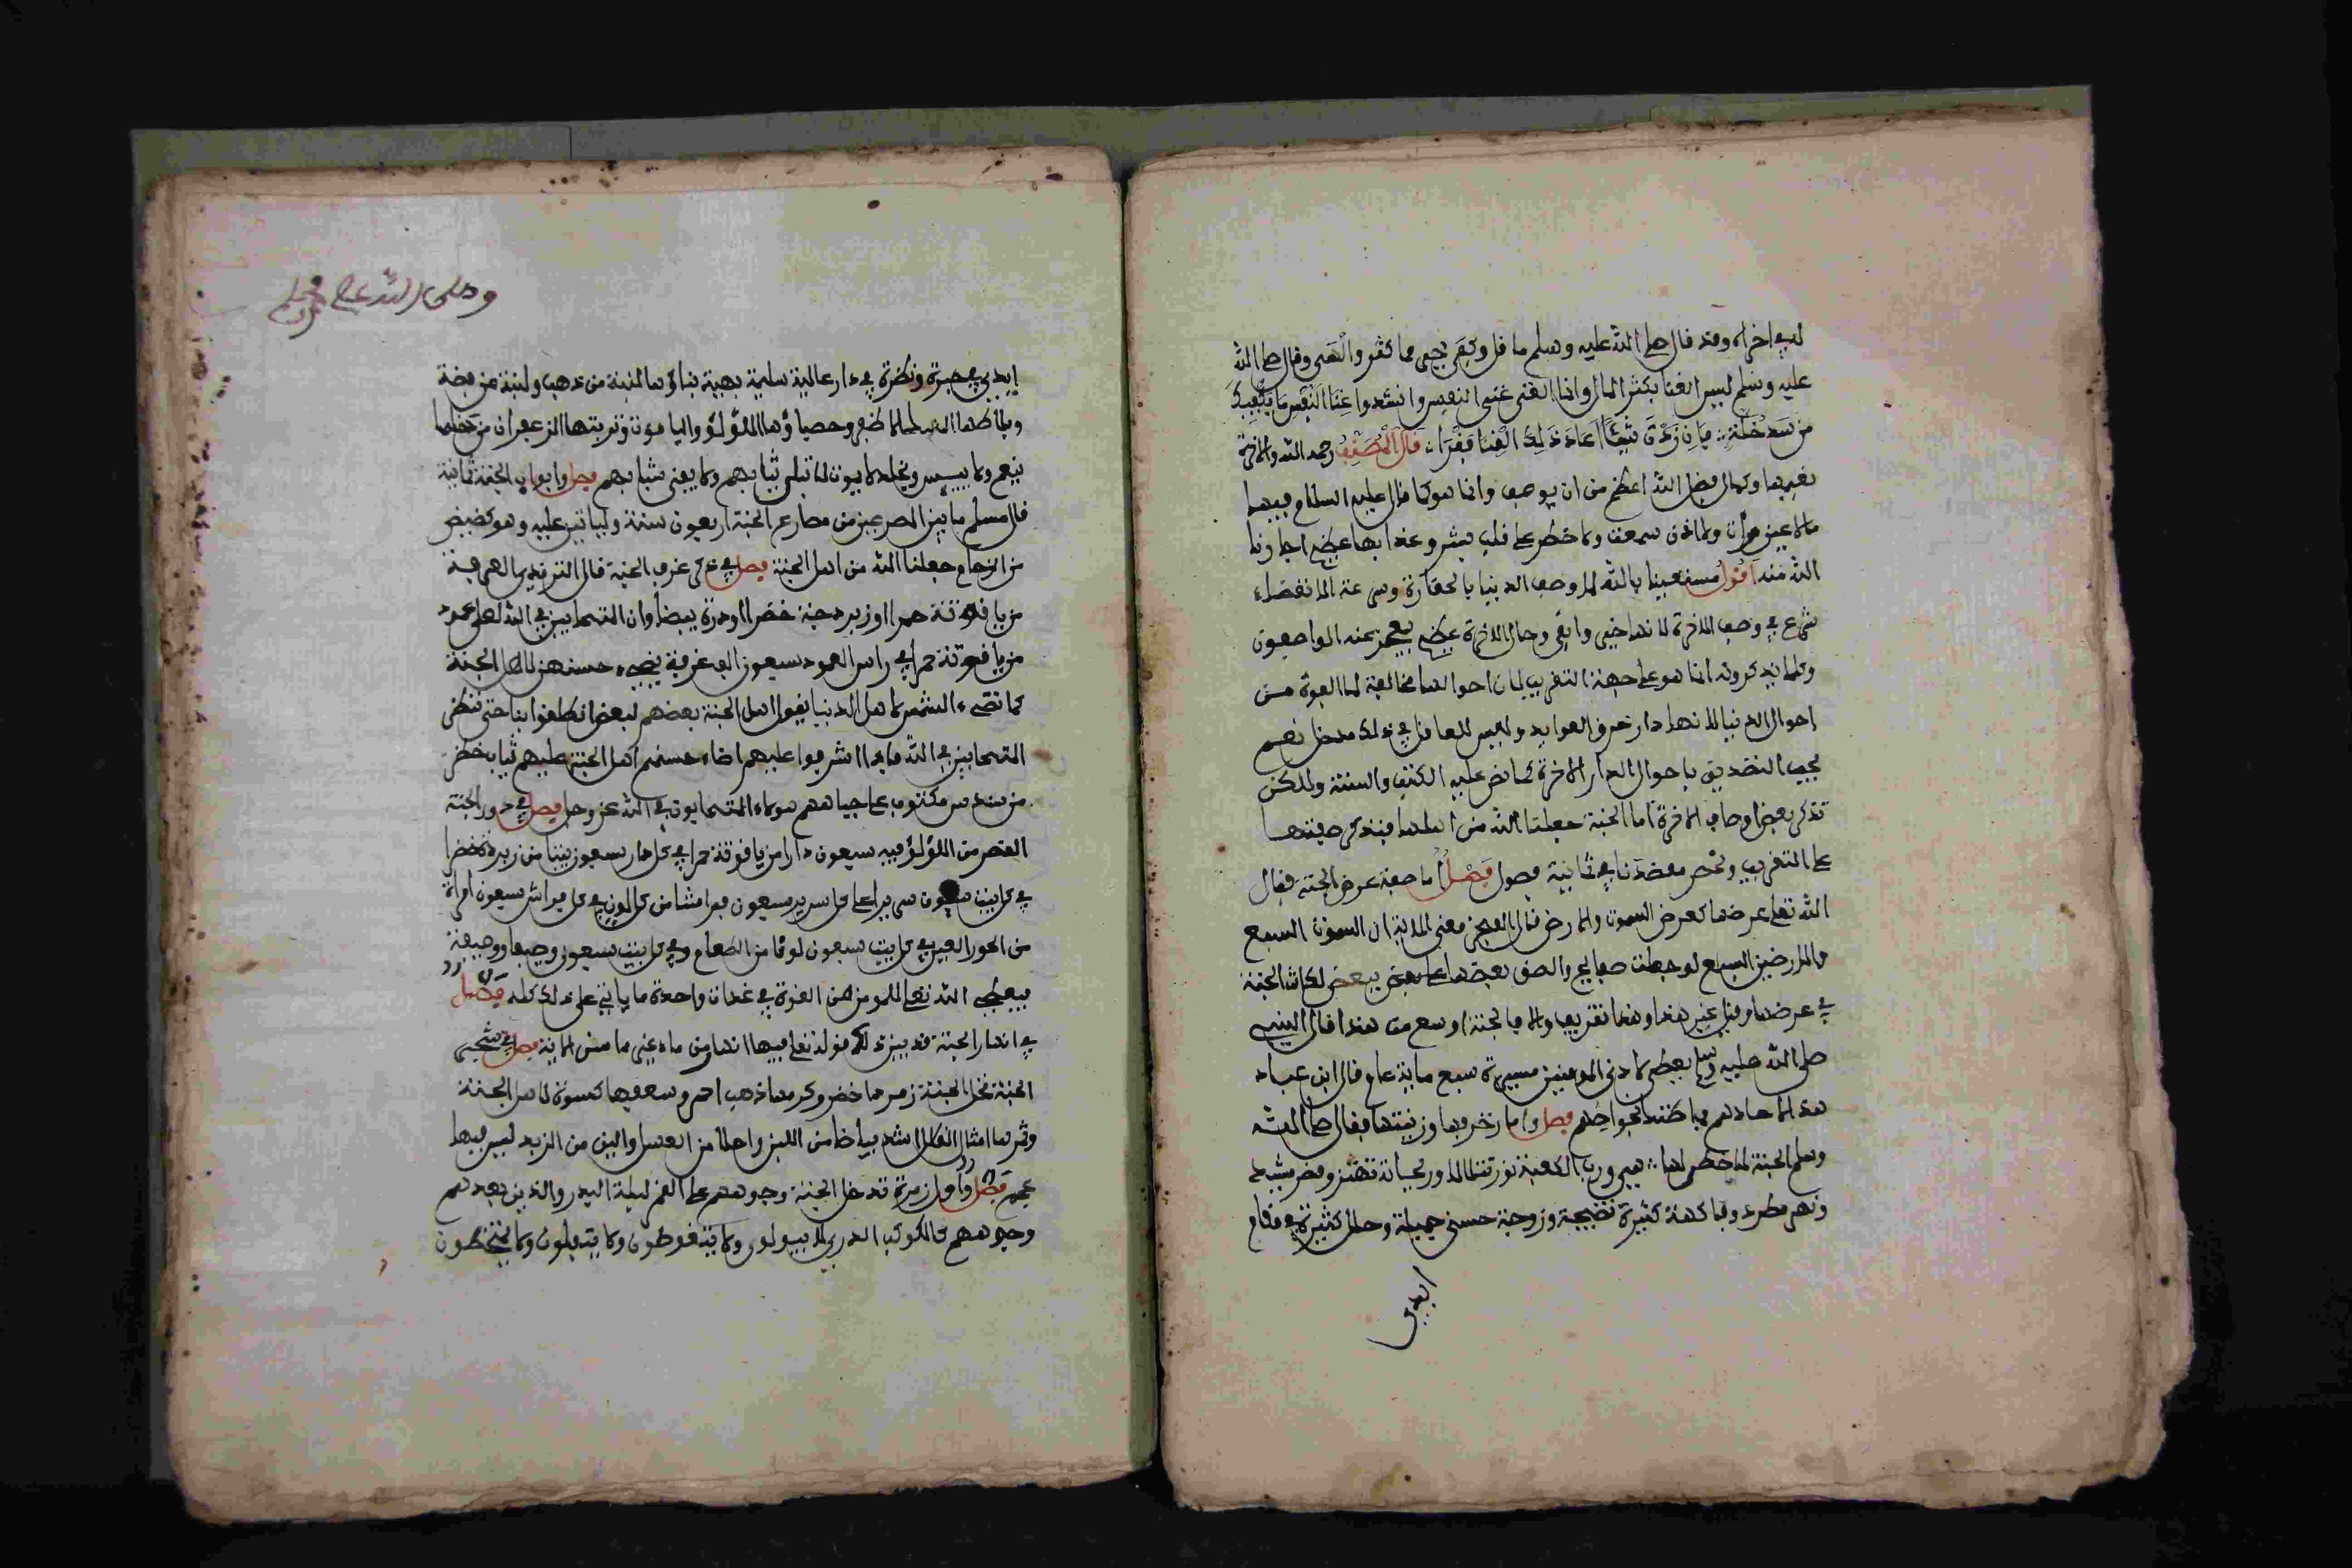 وقد قال صلى الله عليه وسلم ما قل وكفى خير مما كثر والهى وقال صلى الله
عليه وسلم ليس الغنا بكثر المال وانما الغنى غنى النفس وانشدوا غنا النفس ما يكفيك
من سد خلة فان زدت شيئا عاد ذلك الغنا فقرا قال المصنف رحمه الله والاخرة
نعيمها وكمال فضل الله اعظم من ان يوصف وانما هو كما قال عليه السلام فيها
مالا عين رأت ولا اذن سمعت ولا خطر على قلب بشر وعذابها عظيم اجارنا
الله منه اقول مستعينا بالله لما وصف الدنيا بالحقارة وسرعة الانقضاء
شرع في وصف الاخرة لانها خير وابقى وحال الاخرة عظيم يعجز عنه الواصفون
وكلما يذكرونه انما هو على جهة التقريب لان احوالها مخالفة لما العوة من
احوال الدنيا لانها دار خرق العوايد وليس للعاقل في ذلك مدخل نعم
يجب التصديق باحوال الدار الاخرة كما نص عليه الكتب والسنة ولكن
نذكر بعض اوصاف الاخرة اما الجنة جعلنا الله من اهلها فنذكر صفتها
على التقريب وتحصر مقصدنا في ثمانية فصول فصل اما صفة عرض الجنة فقال
الله تعلى عرضها كعرض السموت والارض قال الفخر معنى الاية ان السموت السبع
والارضين السبع لو جعلت صفايح والصق بعضها على بعض ببعض لكانت الجنة
في عرضها وقيل غير هذا وهذا تقريب والا فالجنة اوسع من هذا قال النبي
صلى الله عليه وسلم يعطى لادنى المومنين مسيرة سبع ماية عام قال ابن عباد
هذا لاحادهم فما ظنك بخواصهم فصل واما زخرفها وزينتها فقال صلى الله
وسلم الجنة لا خطر لها هي ورب الكعبة نور تتلالا وريحانة تهتز وقصر مشيد
ونهر مطرد وفاكهة كثيرة نضيجة وزوجة حسنى جميلة وحلل كثيرة في مقام
ابدي
وصلى الله على محمد
ابدي في حبرة ونظرة في دار عالية سليمة بهية بناؤها لبنة من ذهب ولبنة من فضة
وملاطها المسك الاظفر وحصباؤها اللؤلؤ والياقوت وتربتها الزعفران من دخلها
ينعم ولا يبيس ويخلد لا يموت لا تبلى ثيابهم ولا يفنى شبابهم فصل وابواب الجنة ثمانية
قال مسلم ما بين المصرعين من مصارع الجنة اربعون سنة ولياتين عليه وهو كضيض
من الزحام جعلنا الله من اهل الجنة فصل في ذكر غرف الجنة قال الترمذي الغرفة
من ياقوتة حمرا او زبردجة خضرا او درة بيضا وان المتحابين في الله لعلى عمود
من ياقوتة حمرا في راس العمود سبعون الف غرفة يضيء حسنهن لاهل الجنة
كما تضيء الشمس لاهل الدنيا يقول اهل الجنة بعضهم لبعض انطلقوا بنا حتى ننظر
المتحابين في الله فاذا اشرفوا عليهم اضاء حسنهم اهل الجنة عليهم ثياب خضر
من سندس مكتوب على جباههم هولاء المتحابون في الله عز وجل فصل في دور الجنة
القصر من اللؤلؤ فيه سبعون دارا من ياقوتة حمرا في كل دار سبعون بيتا من زبردة خضرا
في كل بيت سبعون سريرا على كل سرير سبعون فراشا من كل لون في كل فراش سبعون امراة
من الحور العين في كل بيت سبعون لونا من الطعام وفي كل بيت سبعون وصيفا ووصيفة
فيعطي الله تعلى للمومن من القوة في غدات واحدة ما ياتي على ذلك كله فصل
في انهار الجنة قد بين ذلك قوله تعلى فيها انهار من ماء غير ءاسن الاية فصل في شجر
الجنة نخل الجنة زمردها خضر وكرمها ذهب احمر وسعفها كسوة لاهل الجنة
وثمرها امثال القلال اشد بياضا من اللبن واحلا من العسل والين من الزبد ليس فيها
عجم فصل واول زمرة تدخل الجنة وجوههم على القمر ليلة البدر والذين بعدهم
وجوههم كالكوكب الدري لا يبولون ولا يتغوطون ولا يتفلون ولا يمتخطون